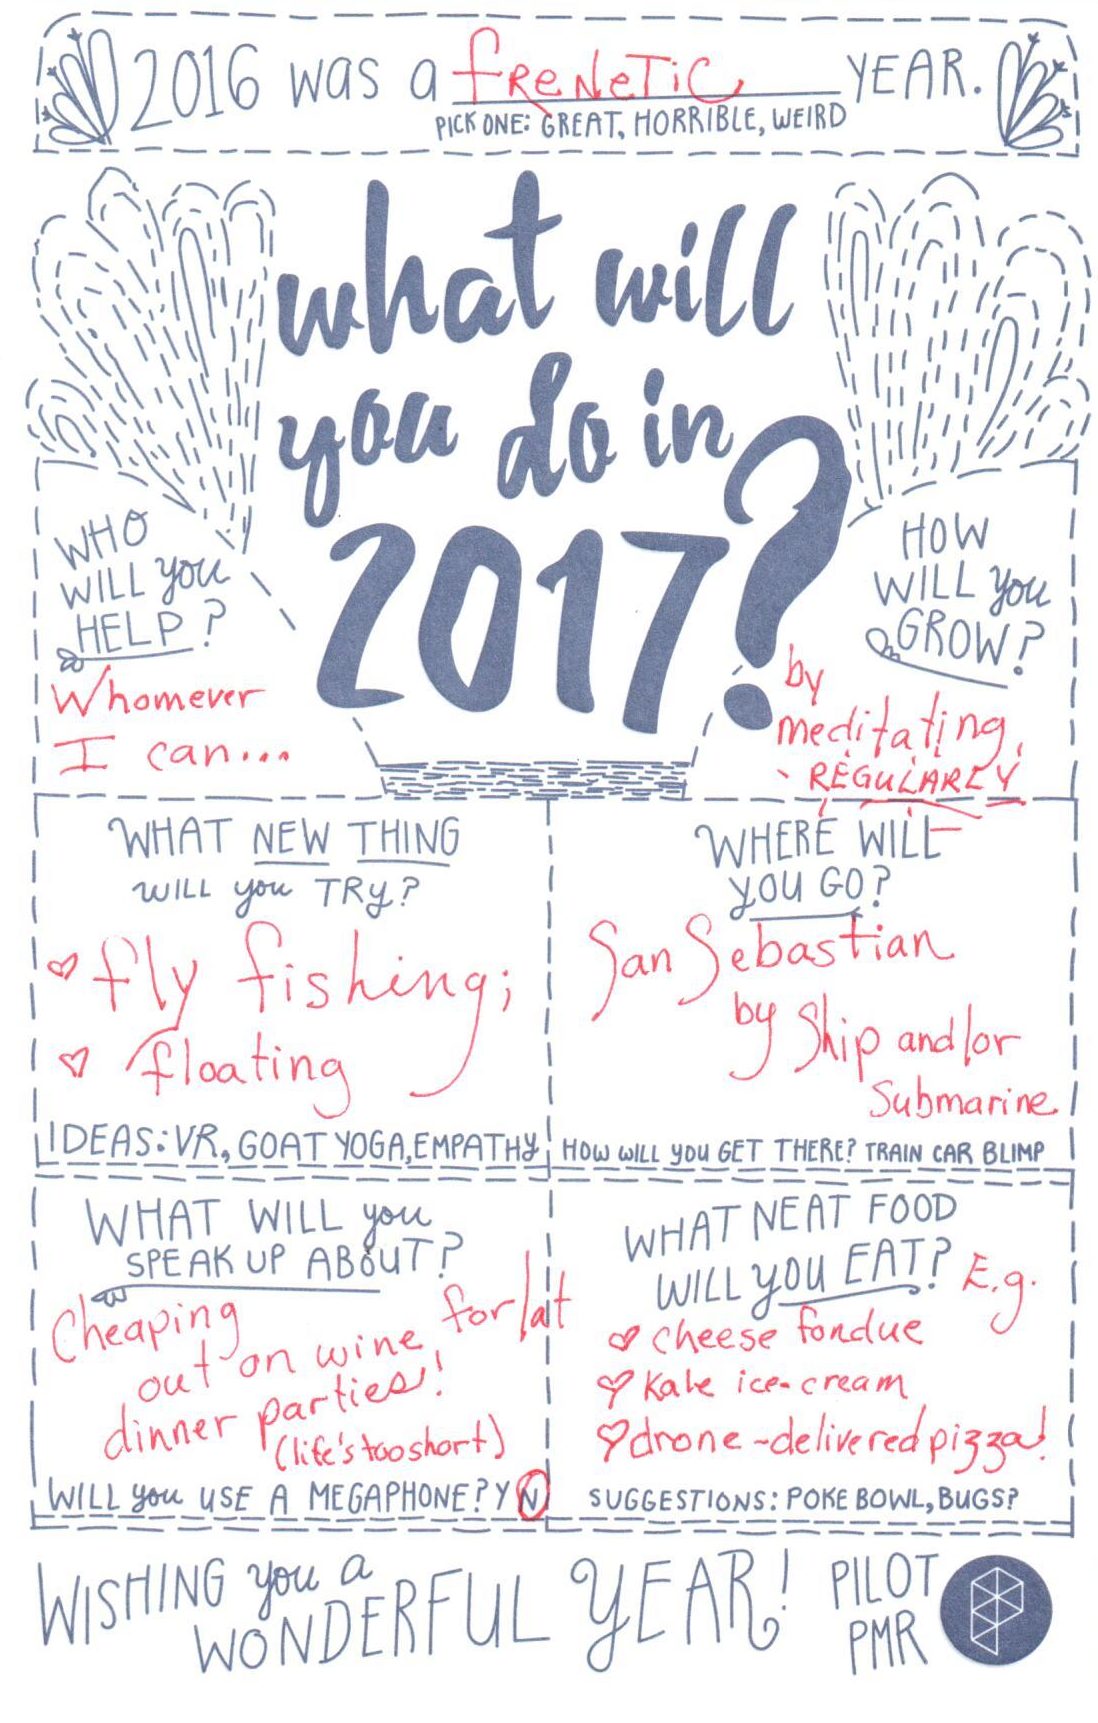 2016 was a freNeTiC YEAR.
PICK ONE: GREAT, HORRIBLE, WEIRD
what will
you do in
2017?
WHO
WILL you
HELP?
Whomever
I can...
HOW
WILL you
GROW?
by
meditating,
REGULARLY
WHAT NEW THING
WILL you TRY?
fly fishing;
floating
IDEAS: VR, GOAT YOGA, EMPATHY
WHERE WILL
YOU GO?
San Sebastian
by Ship and/or
Submarine
HOW WILL YOU GET THERE? TRAIN CAR BLIMP
WHAT WILL you
SPEAK UP ABOUT?
Cheaping
out on wine for/at
dinner parties!
(life's too short)
WILL you USE A MEGAPHONE? Y N
WHAT NEAT FOOD
WILL YOU EAT? E.g.
cheese fondue
Kale ice-cream
drone-delivered pizza!
SUGGESTIONS: POKE BOWL, BUGS?
WISHING you a
WONDERFUL YEAR!
PILOT
PMR